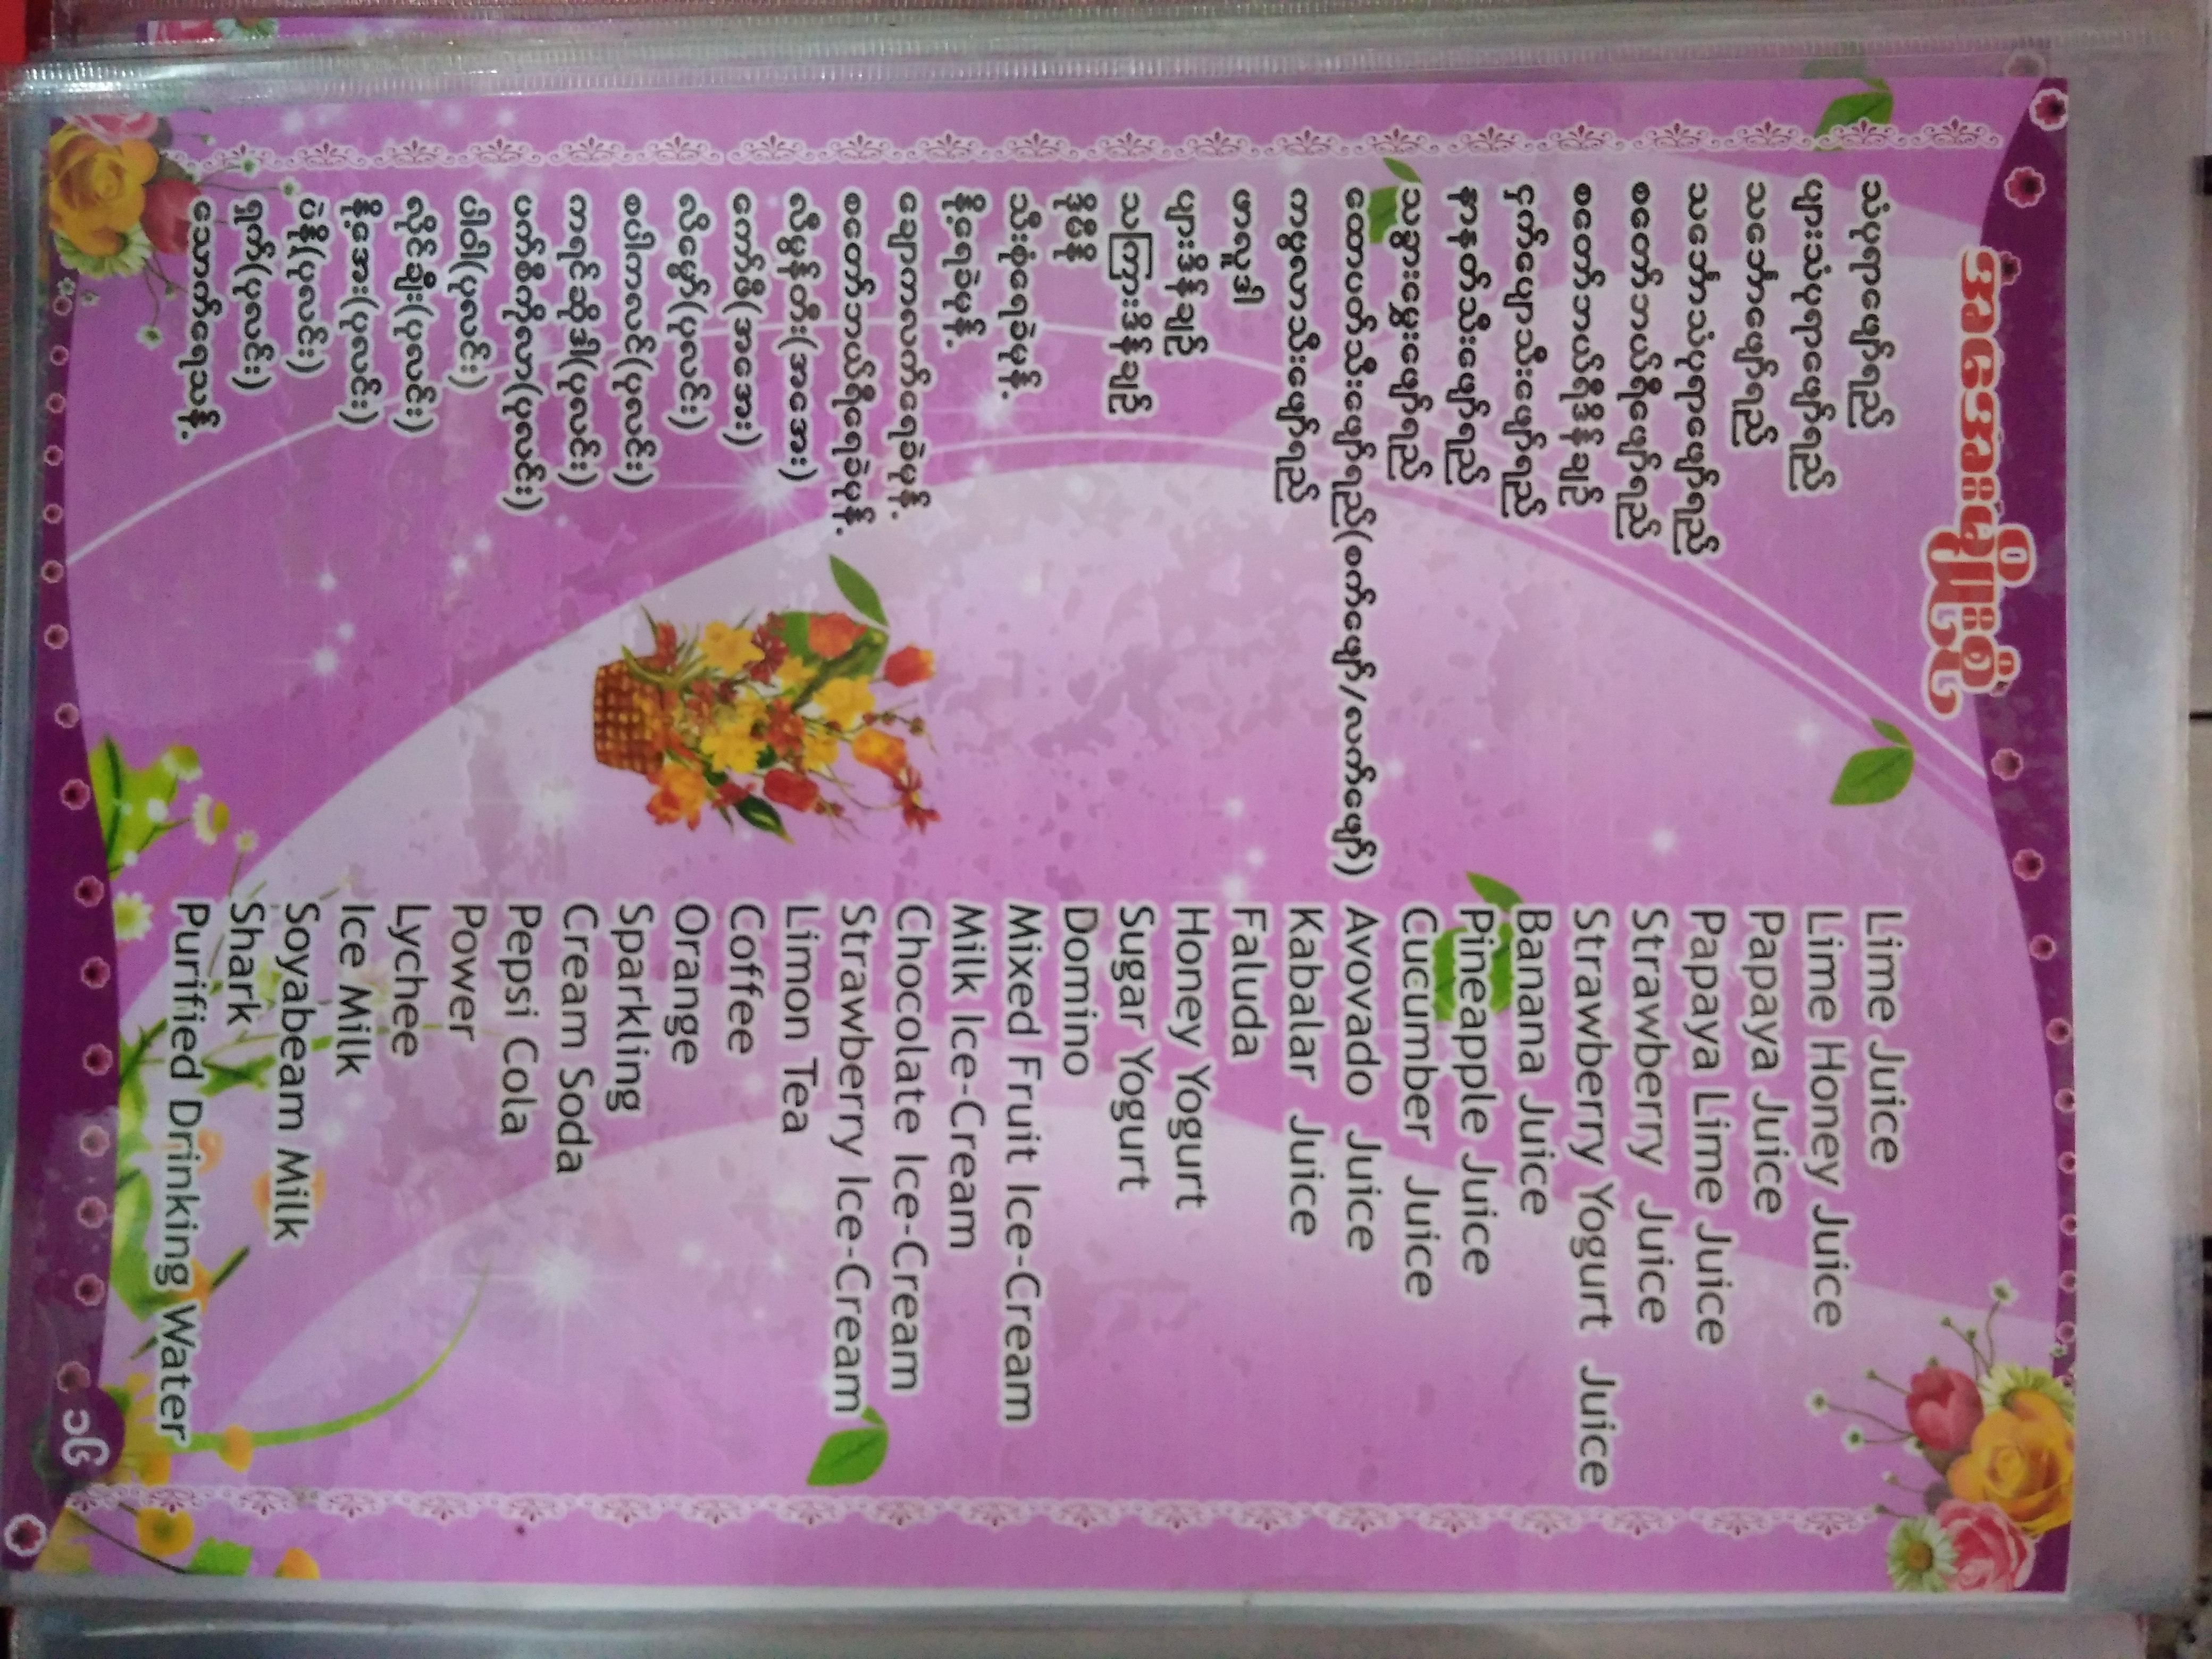 အအေးမျိုးစုံ
သံပုရာဖျော်ရည် Lime Juice
ပျားသံပုရာဖျော်ရည် Lime Honey Juice
သင်္ဘောဖျော်ရည် Papaya Juice
သင်္ဘောသံပုရာဖျော်ရည် Papaya Lime Juice
စတော်ဘယ်ရီဖျော်ရည် Strawberry Juice
စတော်ဘယ်ရီဒိန်ချဉ် Strawberry Yogurt Juice
ငှက်ပျောသီးဖျော်ရည် Banana Juice
နာနတ်သီးဖျော်ရည် Pineapple Juice
သခွားမွှေးဖျော်ရည် Cucumber Juice
ထောပတ်သီးဖျော်ရည်(စက်ဖျော်/လက်ဖျော်) Avovado Juice
ကာဗွလာသီးဖျော်ရည် Kabalar Juice
ဖာလူဒါ Faluda
ပျားဒိန်ချဉ် Honey Yogurt
သကြားဒိန်ချဉ် Sugar Yogurt
ဒိုမီနို Domino
သီးစုံရေခဲမုန့် Mixed Fruit Ice-Cream
နို့ရေခဲမုန့် Milk Ice-Cream
ချောကလက်ရေခဲမုန့် Chocolate Ice-Cream
စတော်ဘယ်ရီရေခဲမုန့် Strawberry Ice-Cream
လီမွန်တီး(အအေး) Limon Tea
ကော်ဖီ(အအေး) Coffee
လိမ္မော်(ပုလင်း) Orange
စပါကာလင်(ပုလင်း) Sparkling
ကရင်ဆိုဒါ(ပုလင်း) Cream Soda
ပက်စီကိုလာ(ပုလင်း) Pepsi Cola
ပါဝါ(ပုလင်း) Power
လိုင်ချီး(ပုလင်း) Lychee
နို့အေး(ပုလင်း) Ice Milk
ပဲနို့(ပုလင်း) Soyabeam Milk
ရှက်(ပုလင်း) Shark
သောက်ရေသန့် Purified Drinking Water
၁၆